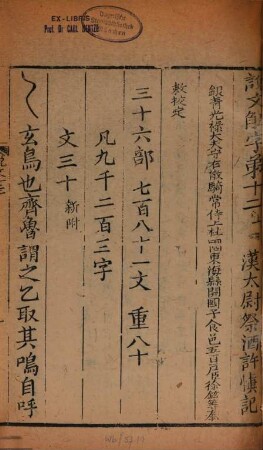 EX-LIBRIS
Prof. Dr CARL BEZOLD
說文解字弟十二上 漢太尉祭酒許慎記
銀青光祿大夫守右散騎常侍上柱國東海縣開國子食邑五百戶臣徐鉉等奉
敕校定
三十六部 七百八十一文 重八十
凡九千二百三字
文三十 新附
玄鳥也齊魯謂之乙取其鳴自呼